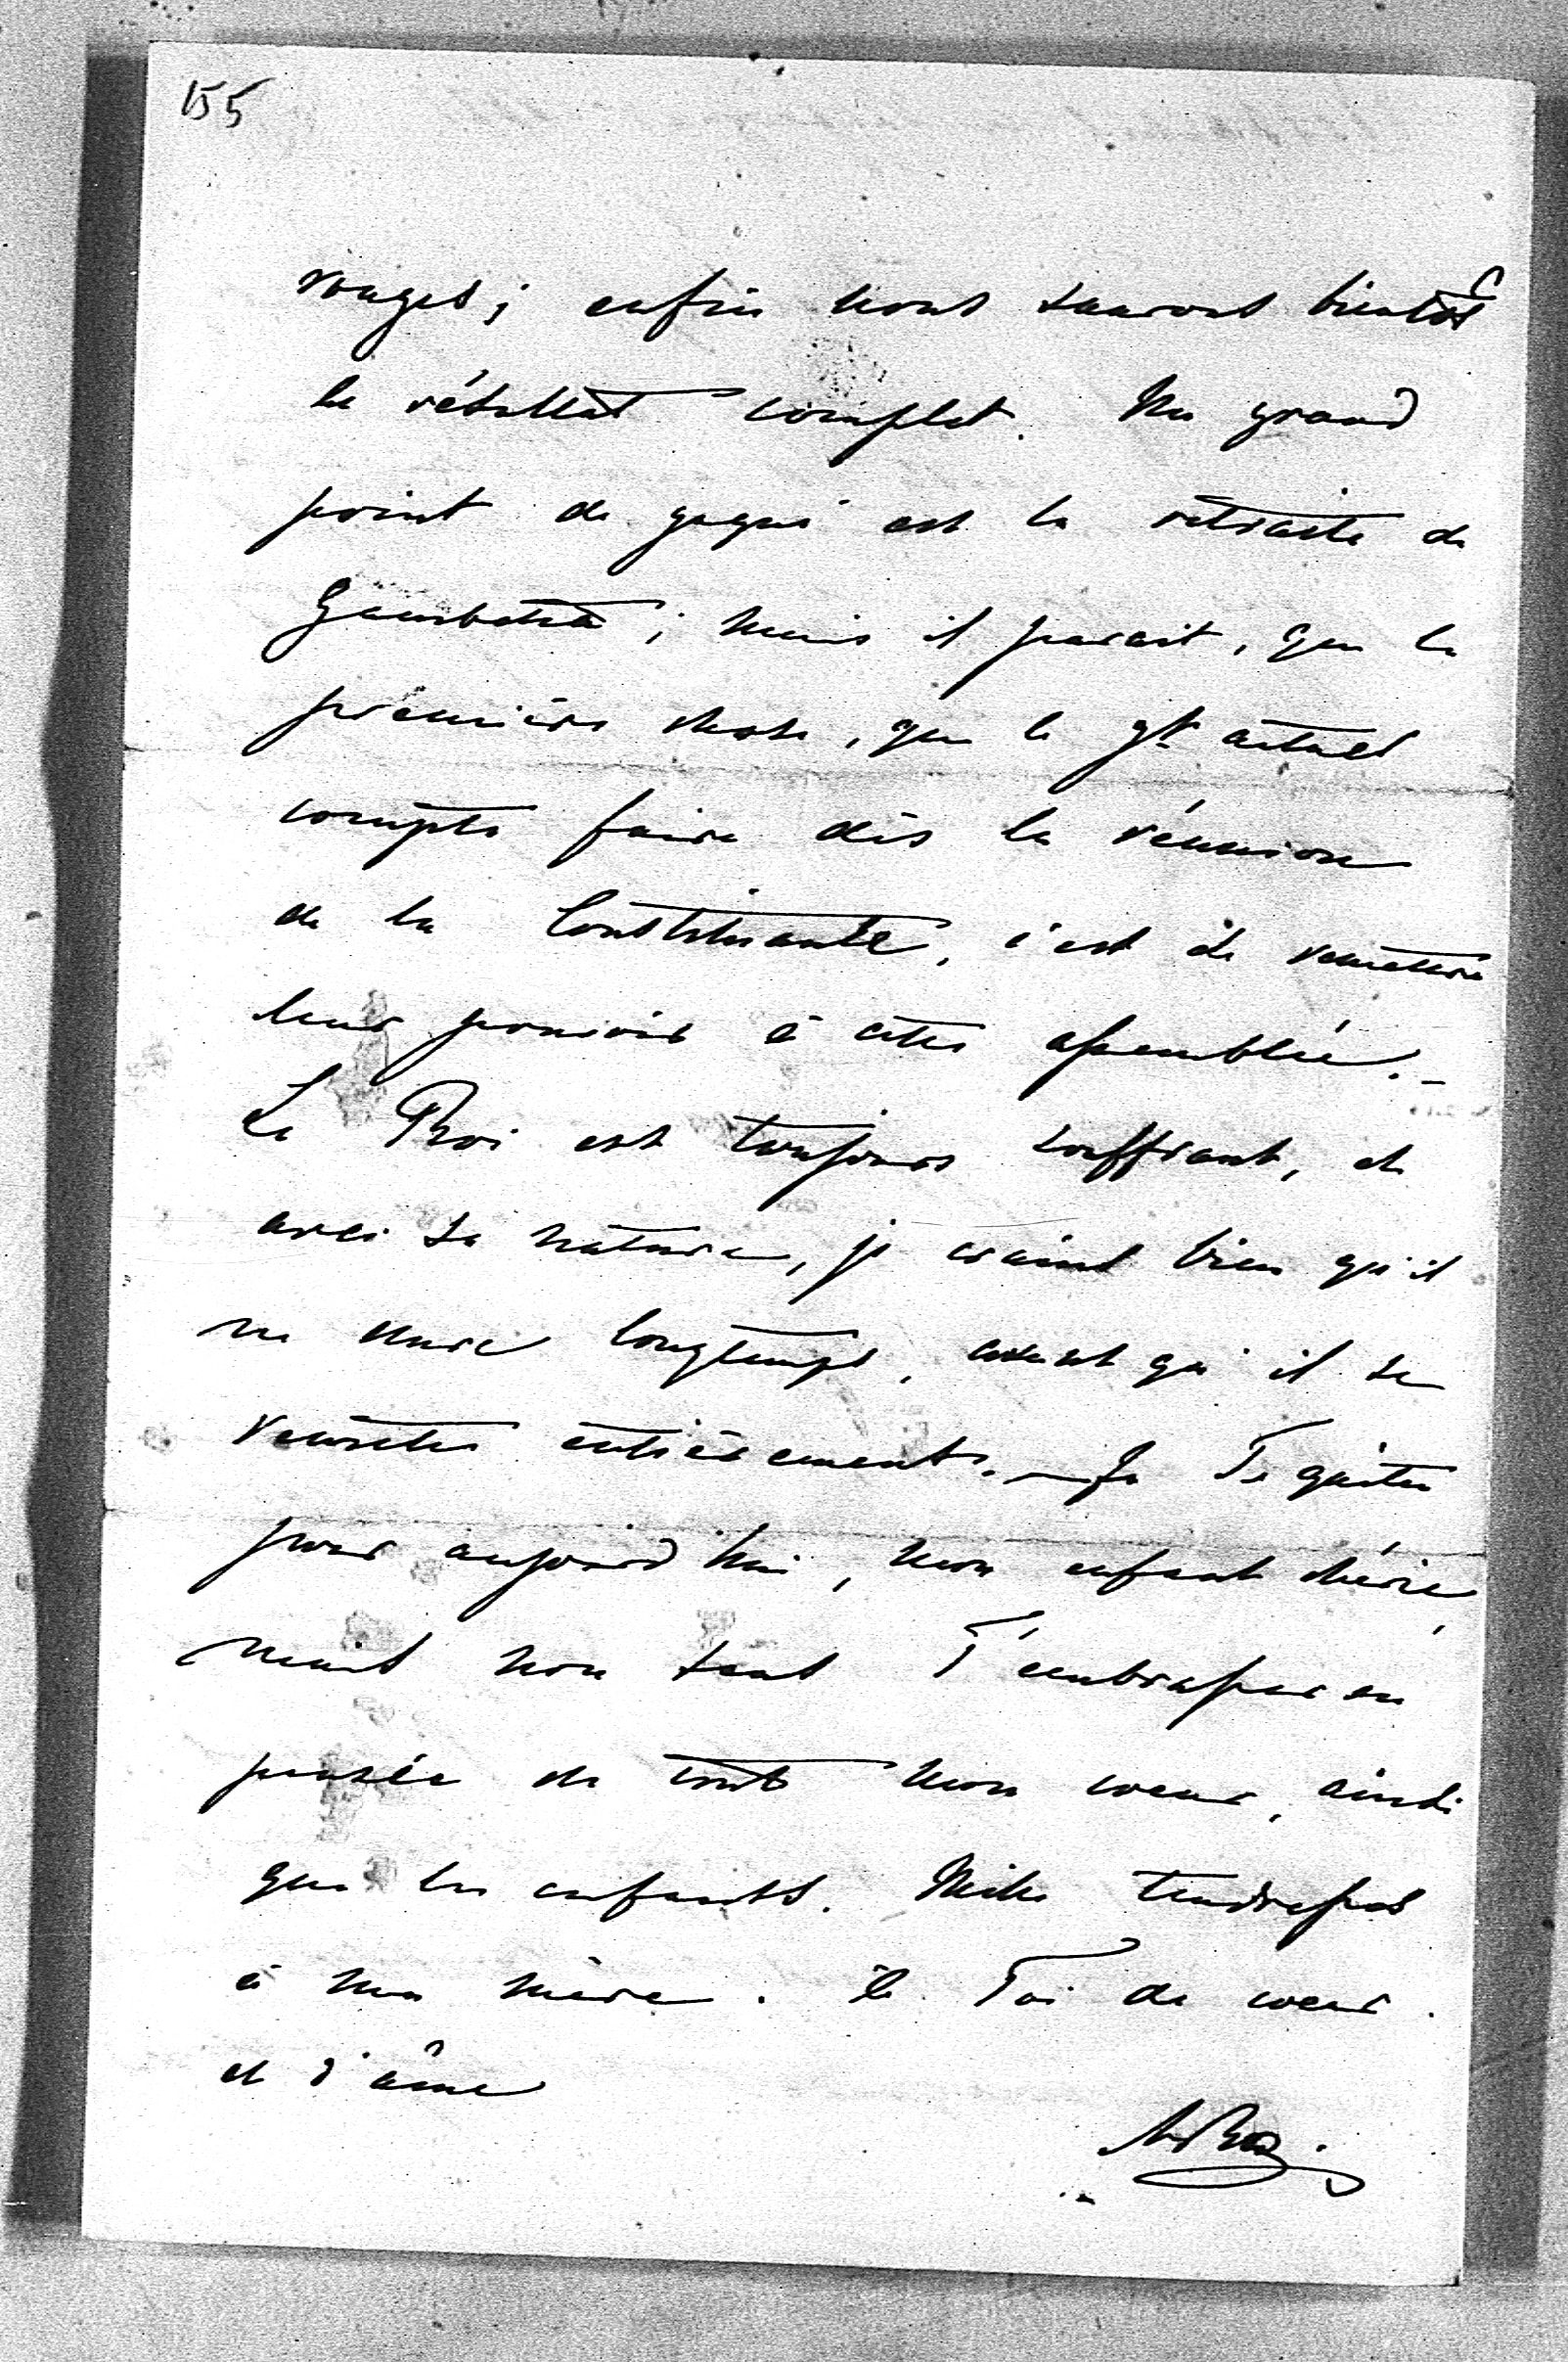 155
rouges; enfin nous saurons bientôt
le résultat complet. Un grand
point de gagné est la retraite de
Gambetta; mais il parait, que la
première chose, que le gt actuel
compte faire dès la réunion
de la Constituante, c'est de remettre
leur pouvoir à cette assemblée. –
Le Roi est toujours souffrant, et
avec sa nature, je crains bien qu'il
ne dure longtemps, avant qu'il se
remette entièrement. – Je Te quitte
pour aujourd'hui, mon enfant chérie,
mais non sans T'embrasser en
pensée de tout mon coeur, ainsi
que les enfants. Mille tendresses
à ma mère. à Toi de coeur
et d'âme